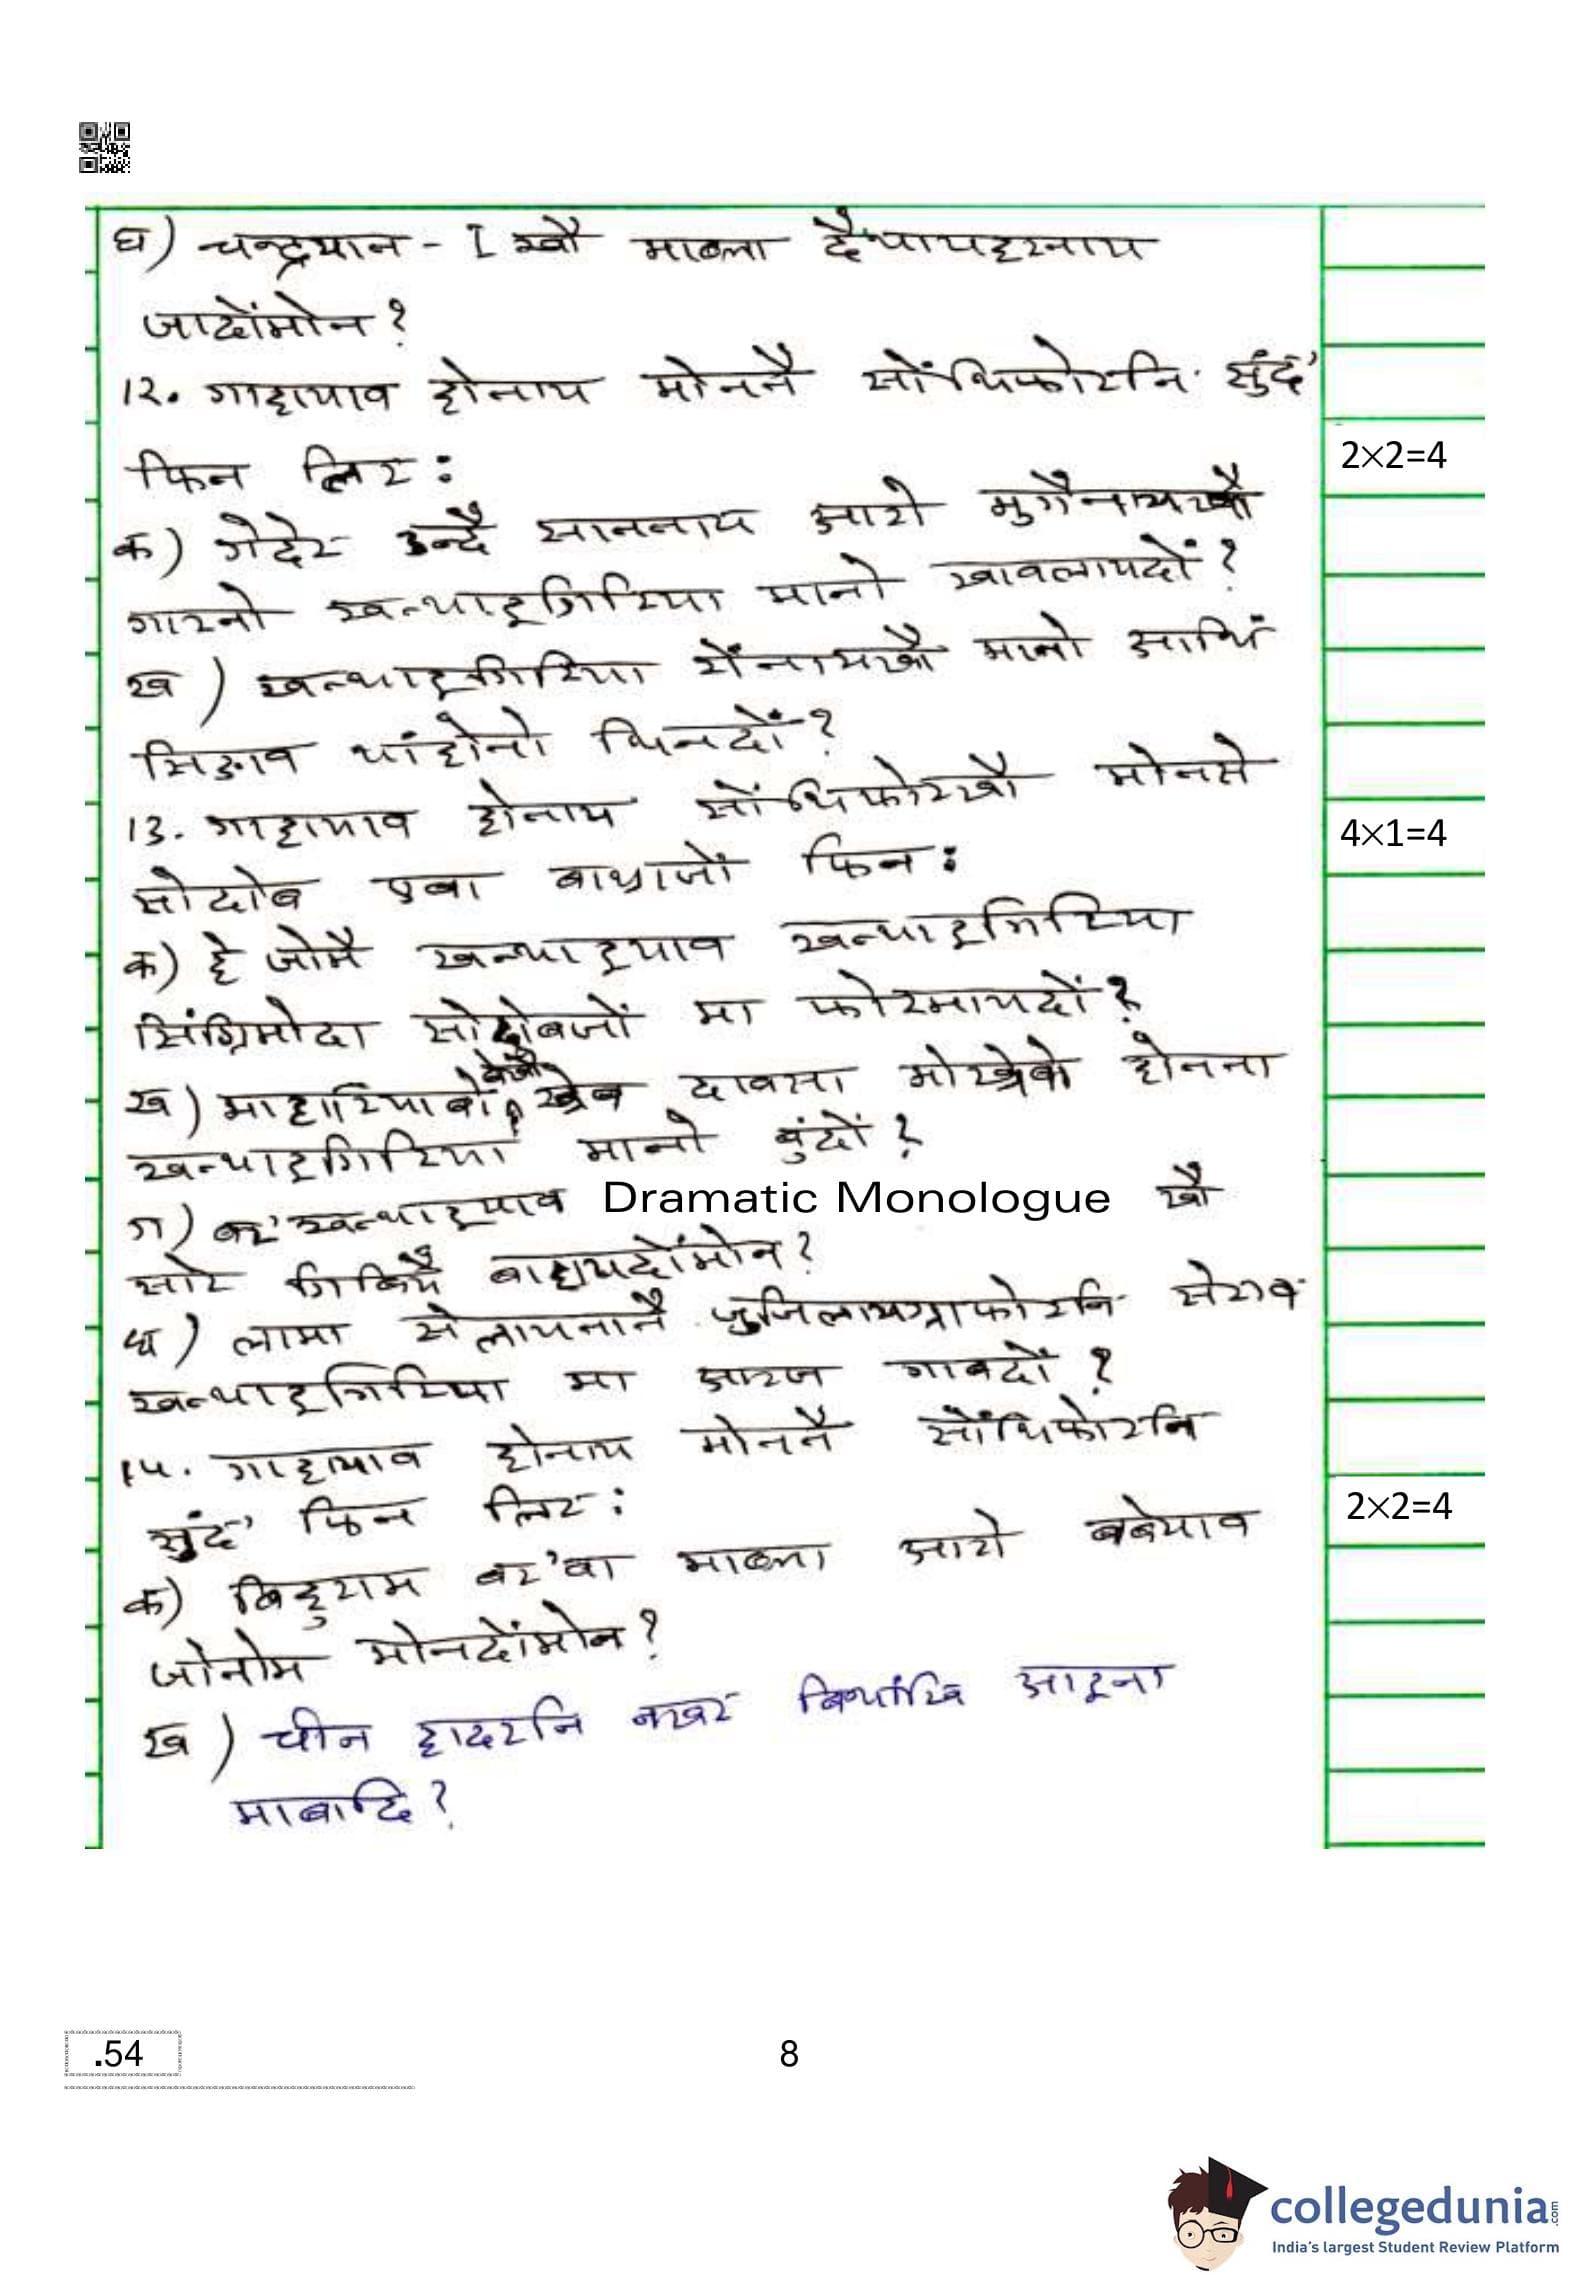 घ) चन्द्रयान - I खौ माब्ला दैथायहरनाय
जादोंमोन?
12. गाहायाव होनाय मोननै सोंथिफोरनि सुंद'
फिन लिर:
2×2=4
क) गेदेर उन्दै साननाय आरो मुगैनायखौ
गारनो खन्थाइगिरिया मानो खावलायदों?
ख) खन्थाइगिरिया गोंनायखौ मानो आथिं
सिङाव थांहोनो थिनदों?
13. गाहायाव होनाय सोंथिफोरखौ मोनसे
4×1=4
सोदोब एबा बाथ्राजों फिन:
क) हे जोमै खन्थाइयाव खन्थाइगिरिया
सिंग्रिमोदा सोदोबजों मा फोरमायदों?
ख) माहारियाबो बेखौ खेब दावसा मोखेबो होनना
खन्थाइगिरिया मानो बुंदों?
ग) बर' खन्थाइयाव Dramatic Monologue खौ
सोर गिबियै बाहायदोंमोन?
घ) लामा सेलायनानै जुजिलायग्राफोरनि सेराव
खन्थाइगिरिया मा आरज गाबदों?
14. गाहायाव होनाय मोननै सोंथिफोरनि
सुंद' फिन लिर:
2×2=4
क) बिदुराम बर'वा माब्ला आरो बबेयाव
जोनोम मोनदोंमोन?
ख) चीन हादरनि नखर बिथांखि आइना
माबादि?
.54
8
collegedunia.com
India's largest Student Review Platform